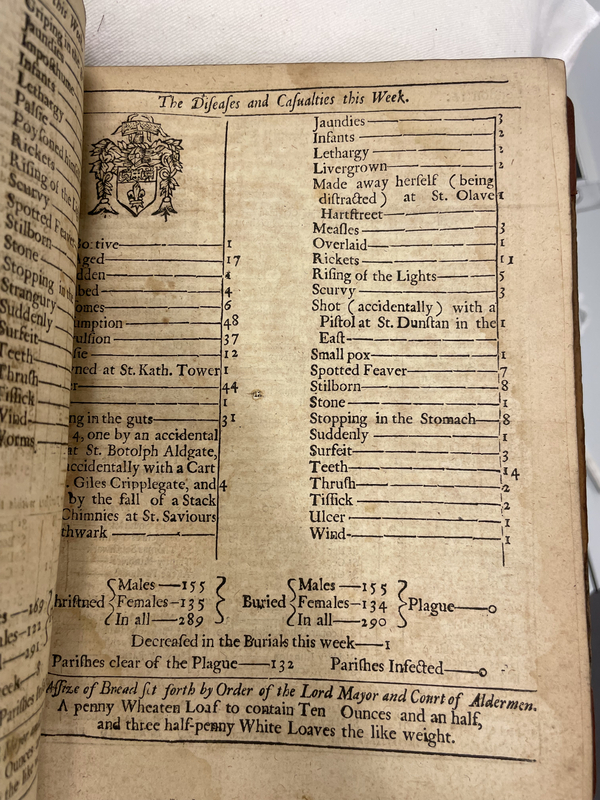 The Diſeaſes and Caſualties this Week.
1
17
4
4
omes 6
umption 48
37
12
at St. Kath. Tower 1
44
1
in the guts 31
4, one by an accidental
St. Botolph Aldgate,
accidentally with a Cart
Giles Cripplegate, and 4
by the fall of a Stack
Chimnies at St. Saviours
thwark
Jaundies 3
Infants 2
Lethargy 2
Livergrown 2
Made away herſelf (being
diſtracted) at St. Olave 1
Hartſtreet
Meaſles 3
Overlaid 1
Rickets 11
Riſing of the Lights 5
Scurvy 3
Shot (accidentally) with a
Piſtol at St. Dunſtan in the 1
Eaſt
Small pox 1
Spotted Feaver 7
Stilborn 8
Stone 1
Stopping in the Stomach 8
Suddenly 1
Surfeit 3
Teeth 14
Thruſh 2
Tiſſick 2
Ulcer 1
Wind 1
hriſtned Males 155 Females 135 In all 289 Buried Males 155 Females 134 In all 290 Plague 0
Decreaſed in the Burials this week 1
Pariſhes clear of the Plague 132 Pariſhes Infected 0
Aſſize of Bread ſet forth by Order of the Lord Mayor and Court of Aldermen.
A penny Wheaten Loaf to contain Ten Ounces and an half,
and three half-penny White Loaves the like weight.
Griping in the
Jaundies
Impoſthume
Infants
Lethargy
Palſie
Poyſoned
Rickets
Riſing of the L
Scurvy
Spotted Feaver
Stilborn
Stone
Stopping in the
Strangury
Suddenly
Surfeit
Teeth
Thruſh
Tiſſick
Wind
Worms